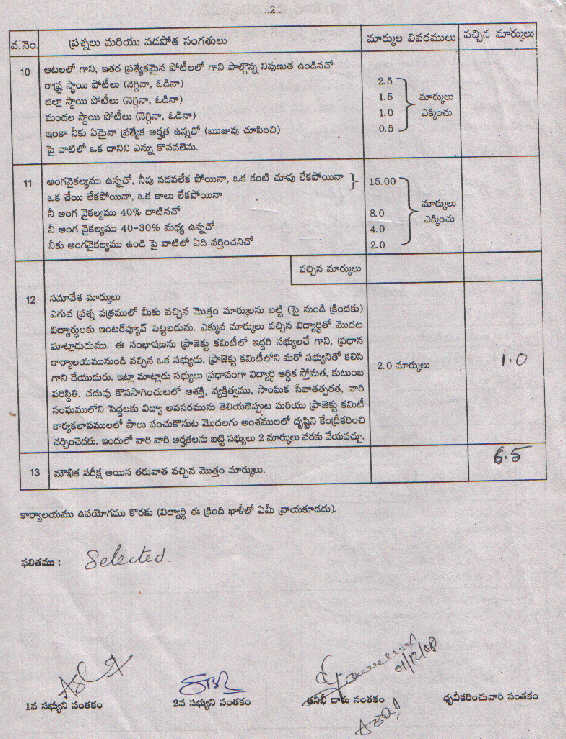 .2.
వ.నెం. ప్రశ్నలు మరియు నడపోత సంగతులు మార్కుల వివరములు వచ్చిన మార్కులు
10 ఆటలలో గాని, ఇతర ప్రత్యేకమైన పోటీలలో గాని పాల్గొన్న నిపుణత ఉండినచో
రాష్ట్ర స్థాయి పోటీలు (నెగ్గినా, ఓడినా) 2.5
జిల్లా స్థాయి పోటీలు (నెగ్గినా, ఓడినా) 1.5 మార్కులు
మండల స్థాయి పోటీలు (నెగ్గినా, ఓడినా) 1.0 ఎక్కించు
ఇంకా నీకు ఏదైనా ప్రత్యేక అర్హత ఉన్నచో (ఋజువు చూపించి) 0.5
పై వాటిలో ఒక దానిని ఎన్ను కొనవలెను.
11 అంగవైకల్యము ఉన్నచో, నీవు నడవలేక పోయినా, ఒక కంటి చూపు లేకపోయినా 15.00
ఒక చేయి లేకపోయినా, ఒక కాలు లేకపోయినా మార్కులు
నీ అంగ వైకల్యము 40% దాటినచో 8.0 ఎక్కించు
నీ అంగ వైకల్యము 40-30% మధ్య ఉన్నచో 4.0
నీకు అంగవైకల్యము ఉండి పై వాటిలో ఏది వర్తించనిచో 2.0
వచ్చిన మార్కులు
12 సమావేశ మార్కులు
ఎగువ ప్రశ్న పత్రములో మీకు వచ్చిన మొత్తం మార్కులను బట్టి (పై నుండి క్రిందకు)
విద్యార్థులకు ఇంటర్వ్యూవ్ పెట్టబడును. ఎక్కువ మార్కులు వచ్చిన విద్యార్థితో మొదట
మాట్లాడుదుము. ఈ సంభాషణను ప్రాజెక్టు కమిటీలో ఇద్దరి సభ్యులచే గాని, ప్రధాన
కార్యాలయమునుండి వచ్చిన ఒక సభ్యుడు, ప్రాజెక్టు కమిటీలోని మరో సభ్యునితో కలిసి
గాని చేయుదురు. ఇట్లా మాట్లాడు సభ్యులు ప్రధానంగా విద్యార్థి ఆర్థిక స్తోమత, కుటుంబ 2.0 మార్కులు 1.0
పరిస్థితి, చదువు కొనసాగించుటలో ఆసక్తి, వ్యక్తిత్వము, సాంఘిక సేవాతత్పరత, వారి
సంఘములోని పెద్దలకు విద్యా అవసరమును తెలియజెప్పుట మరియు ప్రాజెక్టు కమిటీ
కార్యకలాపములలో పాలు పంచుకొనుట మొదలగు అంశములలో దృష్టిని కేంద్రీకరించి
చర్చించెదరు. ఇందులో వారి వారి అర్హతలను బట్టి సభ్యులు 2 మార్కుల వరకు వేయవచ్చు.
13 మౌఖిక పరీక్ష అయిన తరువాత వచ్చిన మొత్తం మార్కులు. 6.5
కార్యాలయము ఉపయోగము కొరకు (విద్యార్థి ఈ క్రింది ఖాళీలో ఏమీ వ్రాయకూడదు).
ఫలితము : Selected.
01/12/08
1వ సభ్యుని సంతకం 2వ సభ్యుని సంతకం సంతకం ధృవీకరించువారి సంతకం